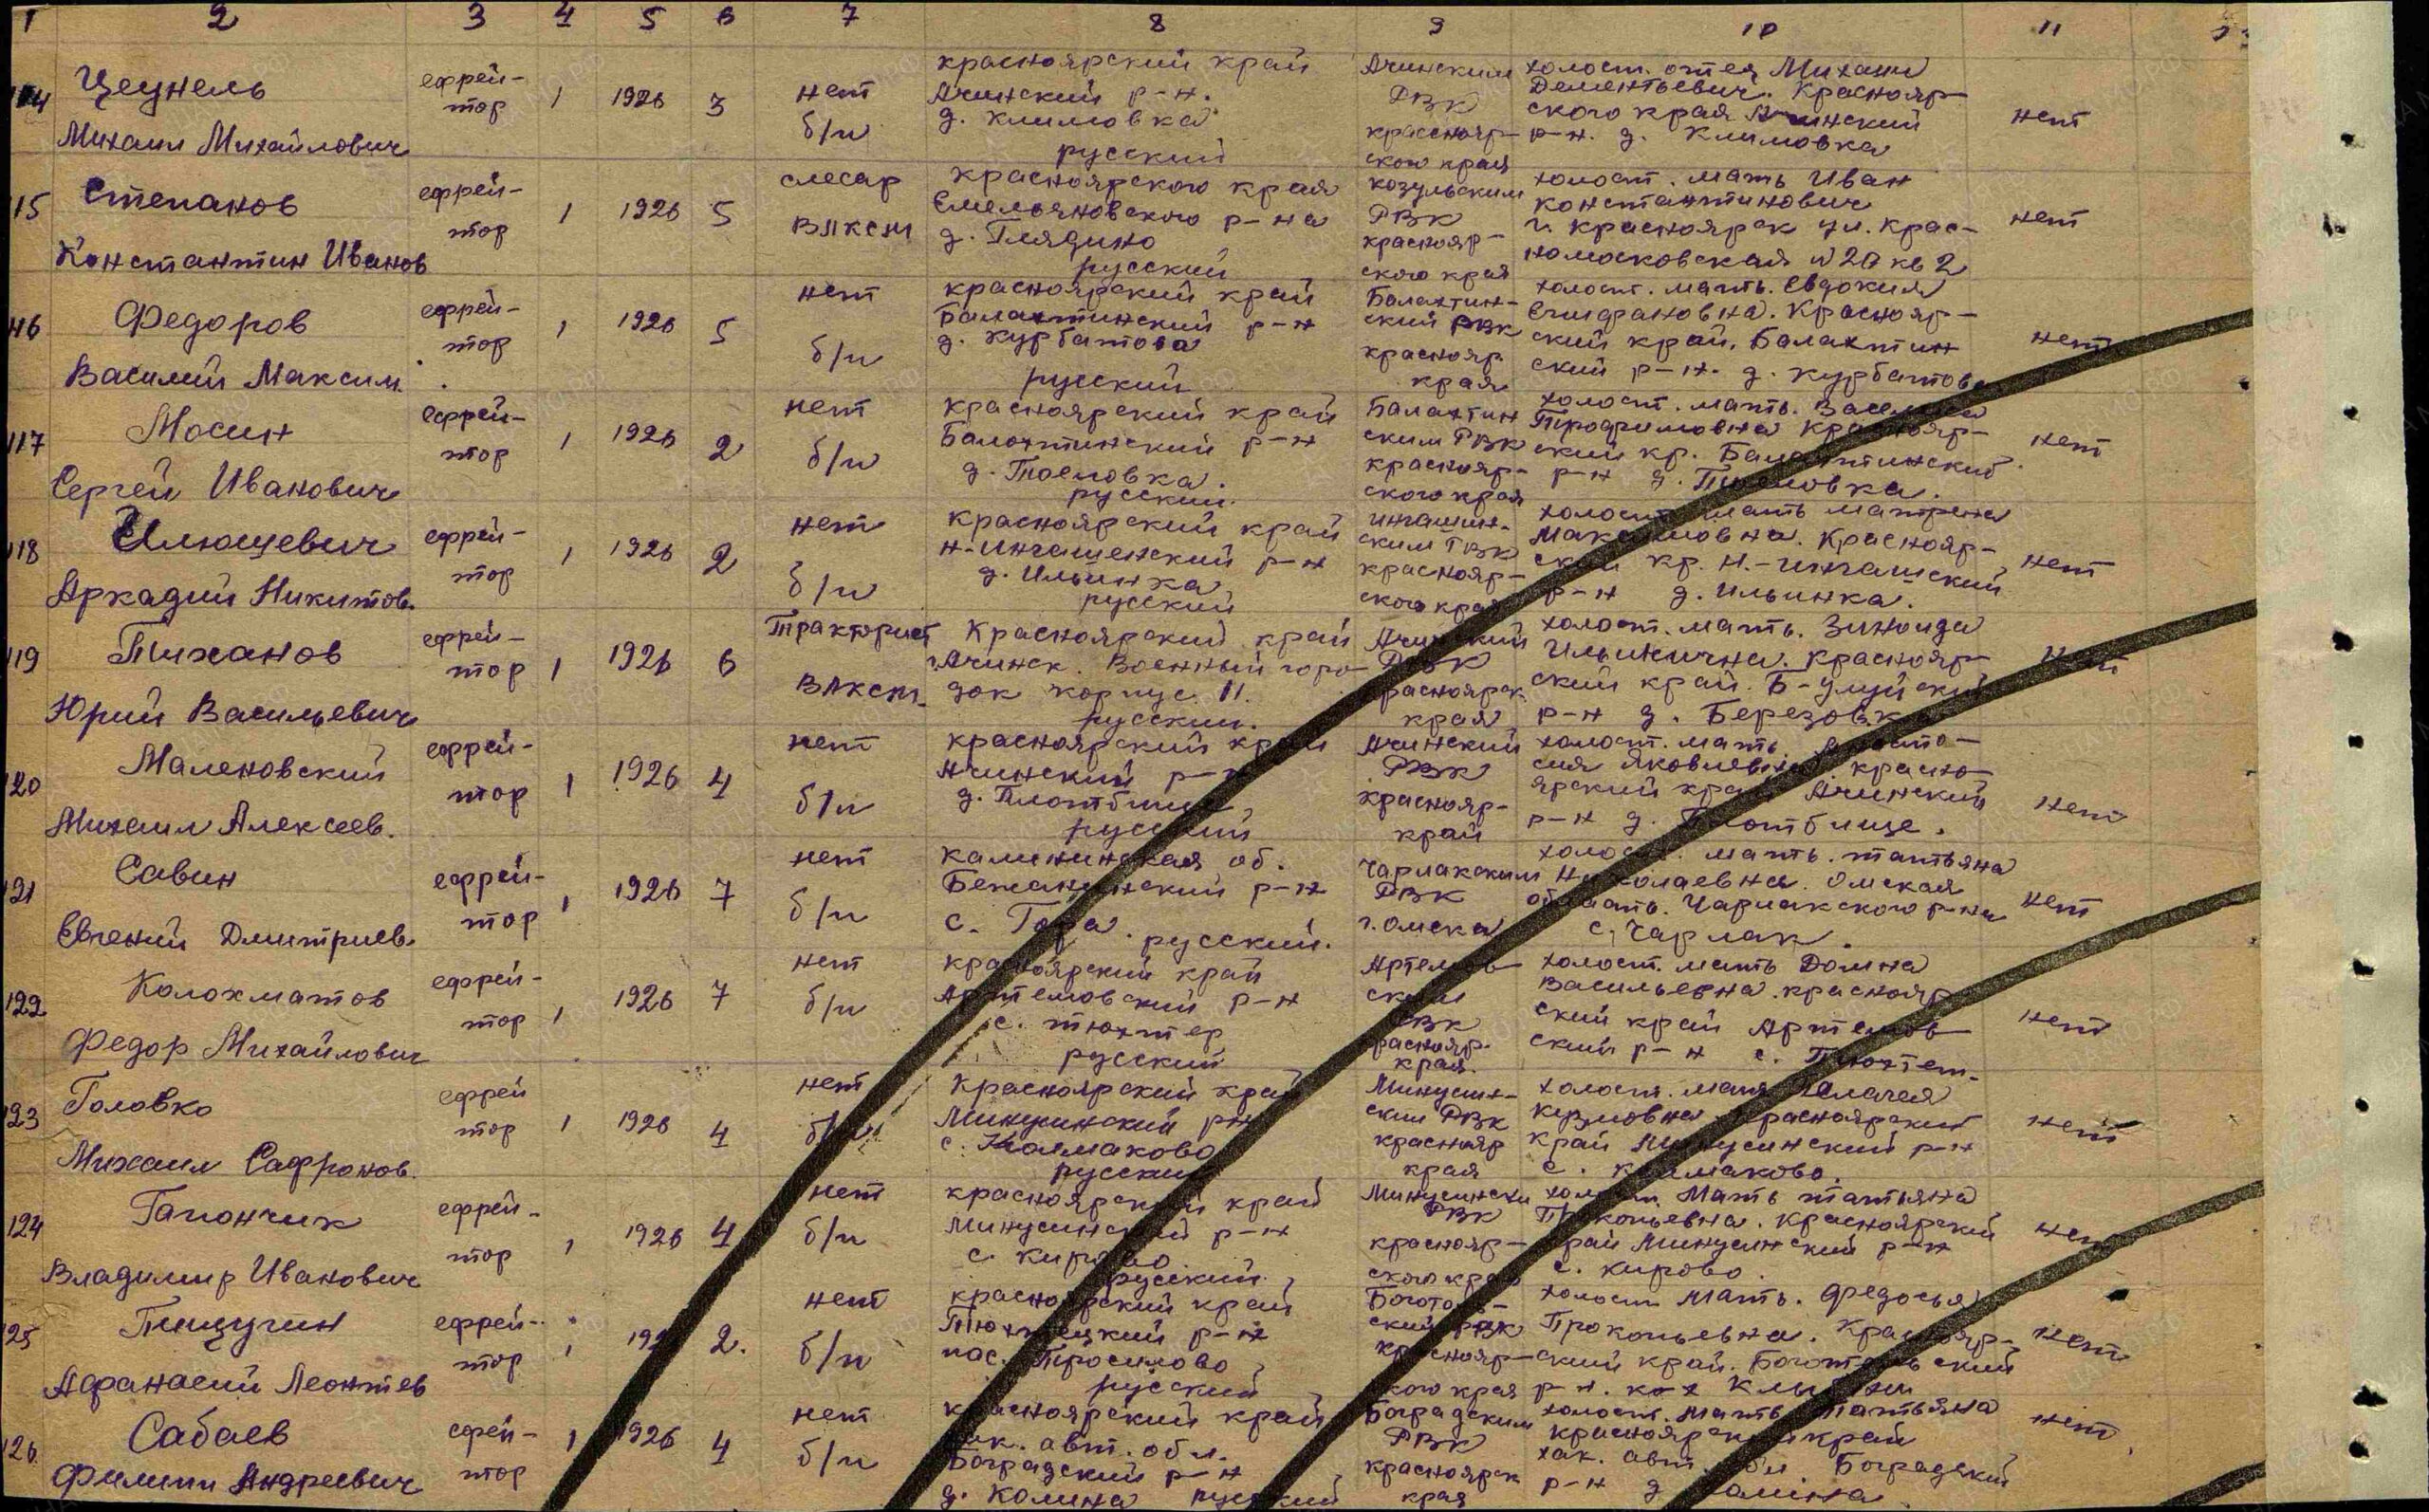 1 2 3 4 5 6 7 8 9 10 11
114 Цеунель Михаил Михайлович ефрей-тор 1 1926 3 нет б/п
красноярский край
Ачинский р-н.
д. климовка
русский
Ачинским
РВК
краснояр-
ского края
холост. отец Михаил
Дементьевич. Краснояр-
ского края Ачинский
р-н. д. Климовка
нет
115 Степанов Константин Иванов ефрей-тор 1 1926 5 слесар ВЛКСМ
красноярского края
Емельяновского р-на
д. Глядино
русский
козульским
РВК
краснояр-
ского края
холост. мать Иван
константинович
г. красноярск ул. Крас-
номосковская №20 кв 2
нет
116 Федоров Василий Максим. ефрей-тор 1 1926 5 нет б/п
красноярский край
Балахтинский р-н
д. курбатова
русский
Балахтин-
ский РВК
краснояр
края
холост. мать. Евдокия
Епифановна. Краснояр-
ский край. Балахтин
ский р-н. д. курбатова
нет
117 Мосин Сергей Иванович ефрей-тор 1 1926 2 нет б/п
красноярский край
Балахтинский р-н
д. Тюльковка
русский.
Балахтин
ским РВК
краснояр-
ского края
холост. мать.
Трофимовна Краснояр-
ский кр. Балахтинский
р-н д.
нет
118 Илющевич Аркадий Никитов. ефрей-тор 1 1926 2 нет б/п
красноярский край
Н-Ингашенский р-н
д. Ильинка
русский
ингашин-
ским РВК
краснояр-
ского края
холост мать матрена
Максимовна. Краснояр-
ский кр. Н.-ингашский
р-н д. Ильинка.
нет
119 Тиханов Юрий Васильевич ефрей-тор 1 1926 6 Тракторист ВЛКСМ
Красноярский край
г Ачинск. Военный горо-
док корпус 11.
русский.
Ачинский
РВК
красноярск
края
холост. мать. Зинаида
Ильинична. Краснояр-
ский край. Б-Улуйский
р-н д. Березовка
нет
120 Малековский Михаил Алексеев. ефрей-тор 1 1926 4 нет б/п
красноярский край
Ачинский р-н
д. Плотбище
русский
Ачинский
РВК
краснояр-
край
холост. мать.
сия Яковлевна красно-
ярский край Ачинский
р-н д. Плотбище.
нет
121 Савин Евгений Дмитриев. ефрей-тор 1 1926 7 нет б/п
калининская об.
Бежаницкий р-н
с. Гора. русский.
Чарлакским
РВК
г. Омска
холост. мать. татьяна
Николаевна. Омская
область. Чарлакского р-на
с. Чарлак.
нет
122 Колохматов Федор Михайлович ефрей-тор 1 1926 7 нет б/п
красноярский край
Артемовский р-н
с. тюхтер
русский
Артемов-
ским
РВК
краснояр.
края.
холост. мать Домна
Васильевна. краснояр
ский край Артемов-
ский р-н с.
нет
123 Головко Михаил Сафронов. ефрей тор 1 1926 4 нет б/п
Красноярский край
Минусинский рн
с. Колмаково
русский
Минусин-
ским РВК
краснояр
края
холост. мать
Красноярский
край Минусинский р-н
с. Колмаково.
нет
124 Гапончик Владимир Иванович ефрей-тор 1 1926 4 нет б/п
красноярский край
Минусинский р-н
с. кирово
русский.
Минусински
РВК
краснояр-
ского края
холост. Мать татьяна
Прокопьевна. Красноярский
край Минусинский р-н
с. кирово.
нет
125 Пищугин Афанасий Леонтьев ефрей-тор 1 1926 2. нет б/п
красноярский край
Тюхтецкий р-н
пос. Просилово
русский
Боготоль-
ский РВК
краснояр-
ского края
холост Мать. Федосья
Прокопьевна. Краснояр-
ский край. Боготольский
р-н.
нет
126. Сабаев Филипп Андреевич ефрей-тор 1 1926 4 нет б/п
красноярский край
хак. авт. обл.
Боградский р-н
д. Колина русский
Боградским
РВК
красноярск
края
холост. Мать татьяна
красноярский край
хак. авт. обл. Боградский
р-н д Калина
нет